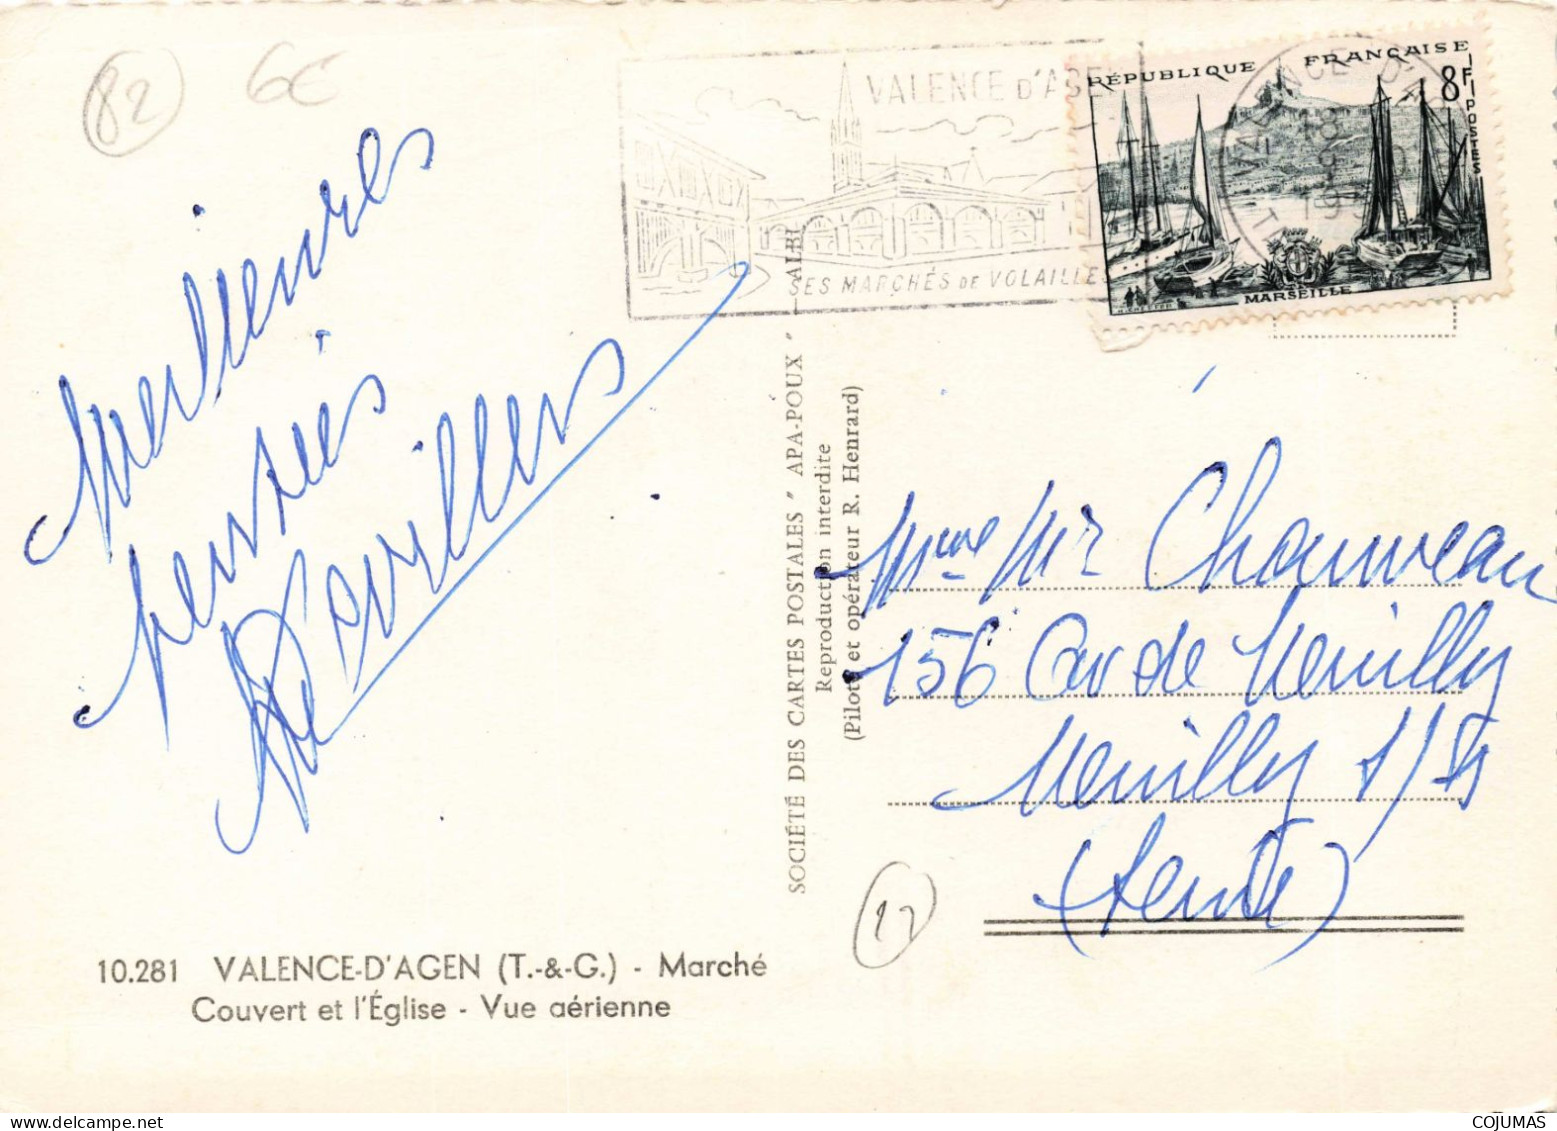 82
6€
VALENCE D'AGEN
SES MARCHÉS DE VOLAILLES
RÉPUBLIQUE FRANÇAISE
8F
POSTES
MARSEILLE
VALENCE D'AG
Meilleures
pensées
Devillers
SOCIÉTÉ DES CARTES POSTALES "APA-POUX" — ALBI
Reproduction interdite
(Pilote et opérateur R. Henrard)
Mme Mr Chauveau
156 Av de Neuilly
Neuilly s/S
(Seine)
12
10.281 VALENCE-D'AGEN (T.-&-G.) - Marché
Couvert et l'Église - Vue aérienne
COJUMAS